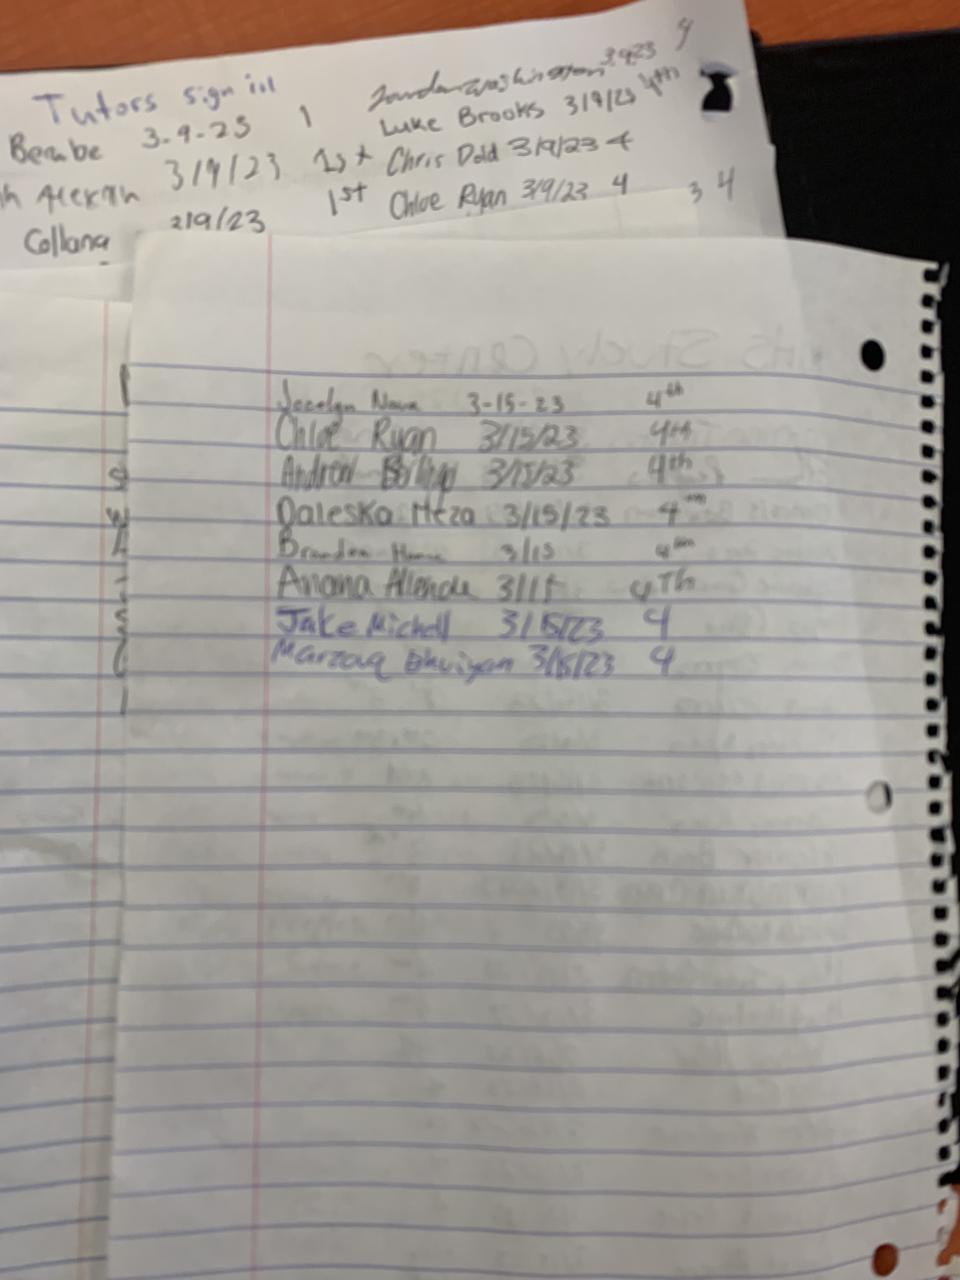 Tutors sign in
Bembe 3-9-23 1
3/9/23 1st
Collana 3/9/23 1st
Jordan Washington 3/9/23 4
Luke Brooks 3/9/23 4th
Chris Dold 3/9/23 4
Chloe Ryan 3/9/23 4 3 4
Study Center
Jocelyn Nava 3-15-23 4th
Chloe Ryan 3/15/23 4th
Andrew 3/15/23 4th
Daleska Meza 3/15/23 4th
Brandon 3/15 4th
Ariana Allende 3/15 4Th
Jake Michell 3/15/23 4
Marzouq Bhuiyan 3/15/23 4